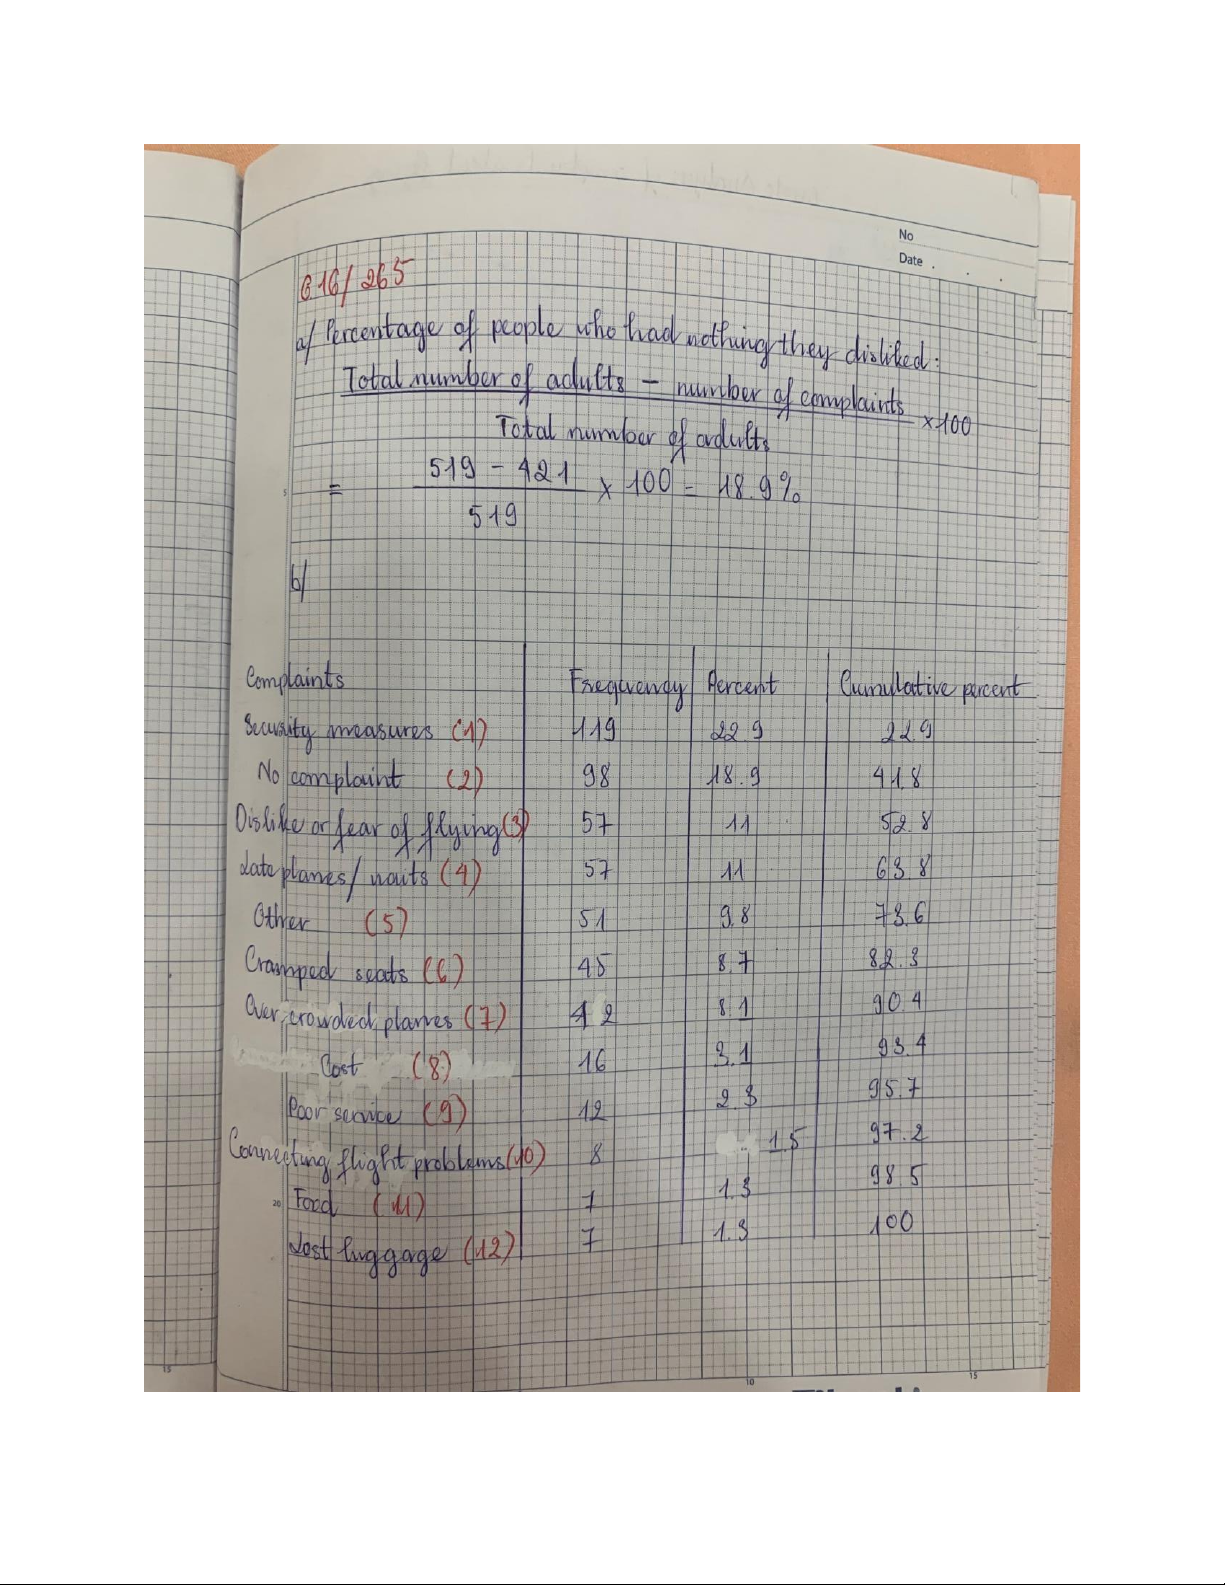 No
Date . . .
6.16/265
a/ Percentage of people who had nothing they disliked:
Total number of adults - number of complaints
x 100
Total number of adults
= 519 - 421 x 100 = 18.9%
519
b/
Complaints Frequency Percent Cumulative percent
Security measures (1) 119 22.9 22.9
No complaint (2) 98 18.9 41.8
Dislike or fear of flying (3) 57 11 52.8
Late planes/ waits (4) 57 11 63.8
Other (5) 51 9.8 73.6
Cramped seats (6) 45 8.7 82.3
Over crowded planes (7) 42 8.1 90.4
Cost (8) 16 3.1 93.4
Poor service (9) 12 2.3 95.7
Connecting flight problems (10) 8 1.5 97.2
Food (11) 7 1.3 98.5
Lost luggage (12) 7 1.3 100
5
20
15
10
15